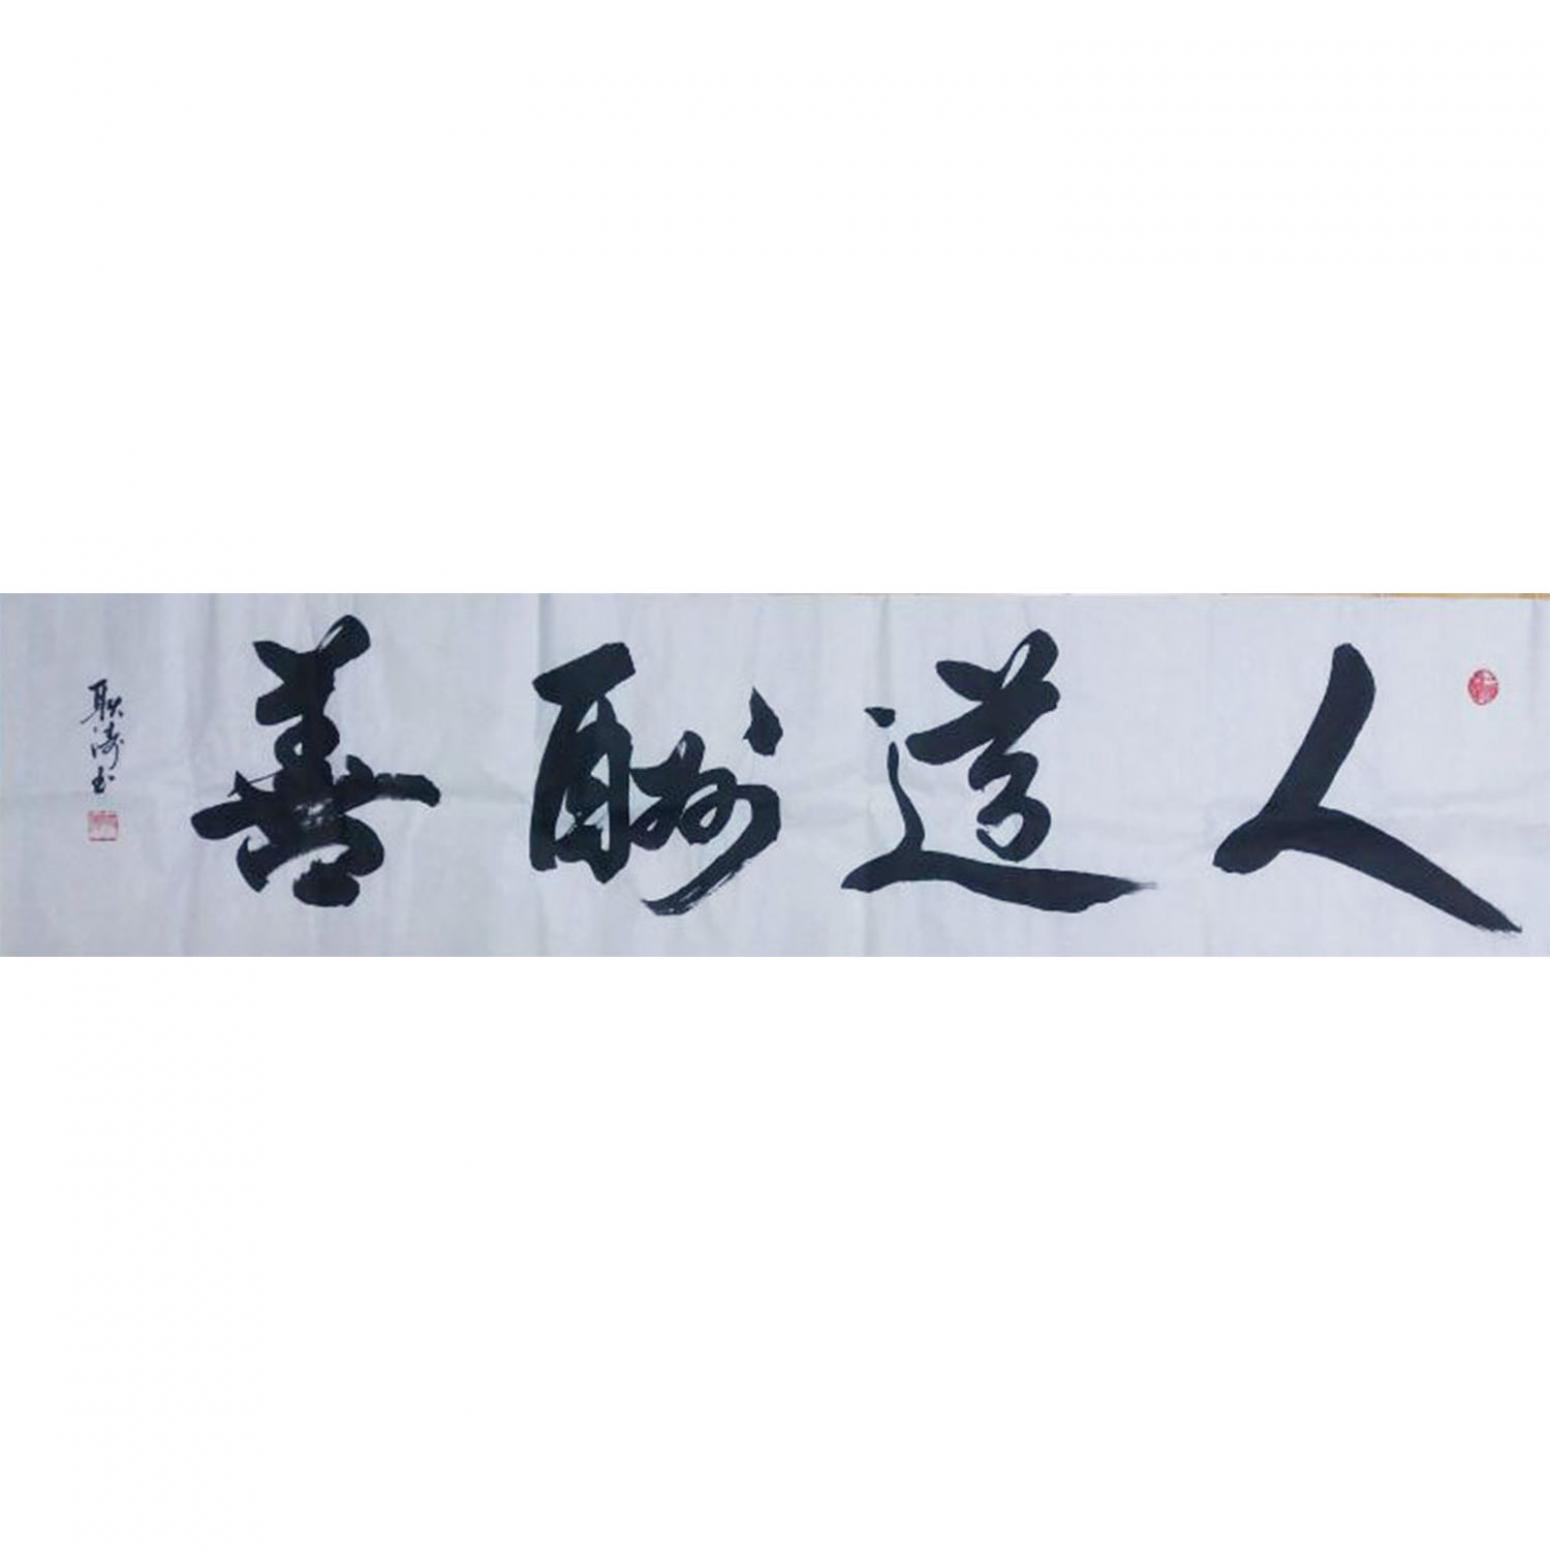 人道酬善
耿涛书